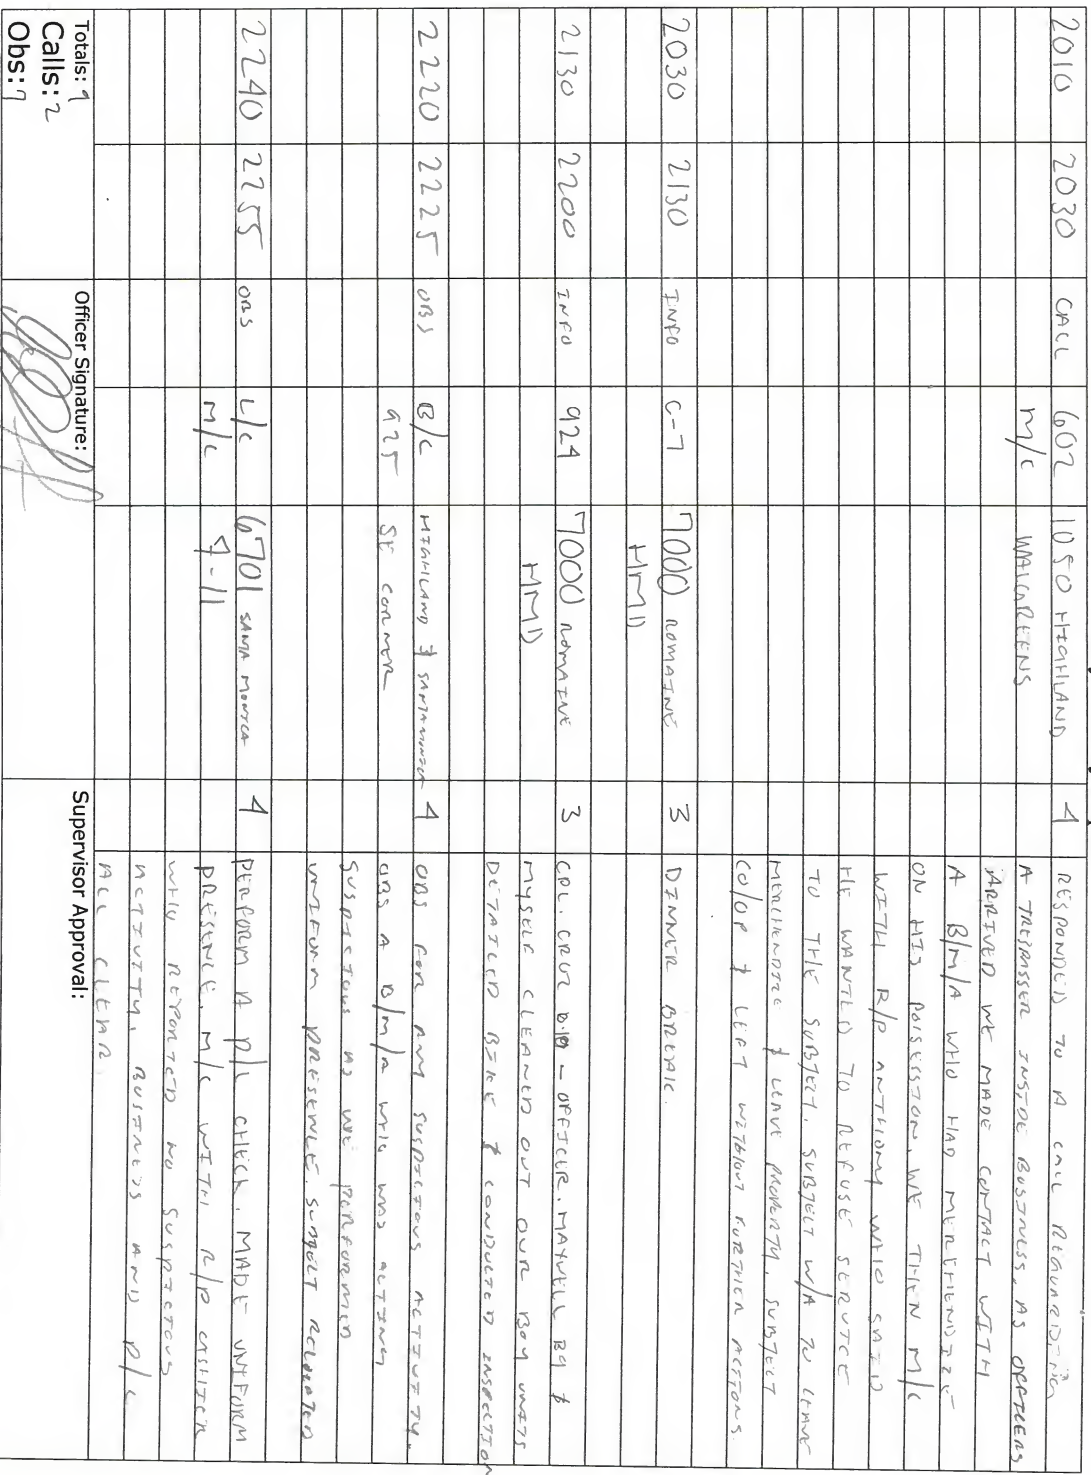 2010 2030 CALL 602 1050 HIGHLAND 4 RESPONDED TO A CALL REGUARDING
M/C WALGREENS A TRESPASSER INSIDE BUSINESS, AS OFFICERS
ARRIVED WE MADE CONTACT WITH
A B/M/A WHO HAD MEREHENDIZE
ON HIS POISESSION. WE THEN M/C
WITH R/P ANTHONY WHO SAID
HE WANTED TO REFUSE SERVICE
TO THE SUBJECT. SUBJECT W/A TO LEAVE
MERCHENDIZE & LEAVE PROPERTY, SUBJECT
CO/OP & LEFT WITHOUT FURTHER ACTIONS.
2030 2130 INFO C-7 7000 ROMAINE 3 DINNER BREAK.
HMD
2130 2200 INFO 924 7000 ROMAINE 3 CPL. CRUZ B10 - OFFICER. MAXWELL B9 &
HMD MYSELF CLEANED OUT OUR BOY UNITS
DETAILED BIKE & CONDUCTED INSPECTION
2220 2225 OBS B/C HIGHLAND & SANTA MONICA 4 OBS FOR ANY SUSPICIOUS ACTIVITY.
925 SE CORNER OBS A B/M/A WHO WAS ACTING
SUSPICIOUS AS WE PERFORMED
UNIFORM PRESENCE. SUBJECT RELOCATED
2240 2255 OBS L/C 6701 SANTA MONICA 4 PERFORM A P/L CHECK. MADE UNIFORM
M/C 7-11 PRESENCE. M/C WITH R/P CASHIER
WHO REPORTED NO SUSPICIOUS
ACTIVITY. BUSINESS AND P/L
ALL CLEAR.
Totals: 9
Calls: 2
Obs: 7
Officer Signature:
Supervisor Approval: